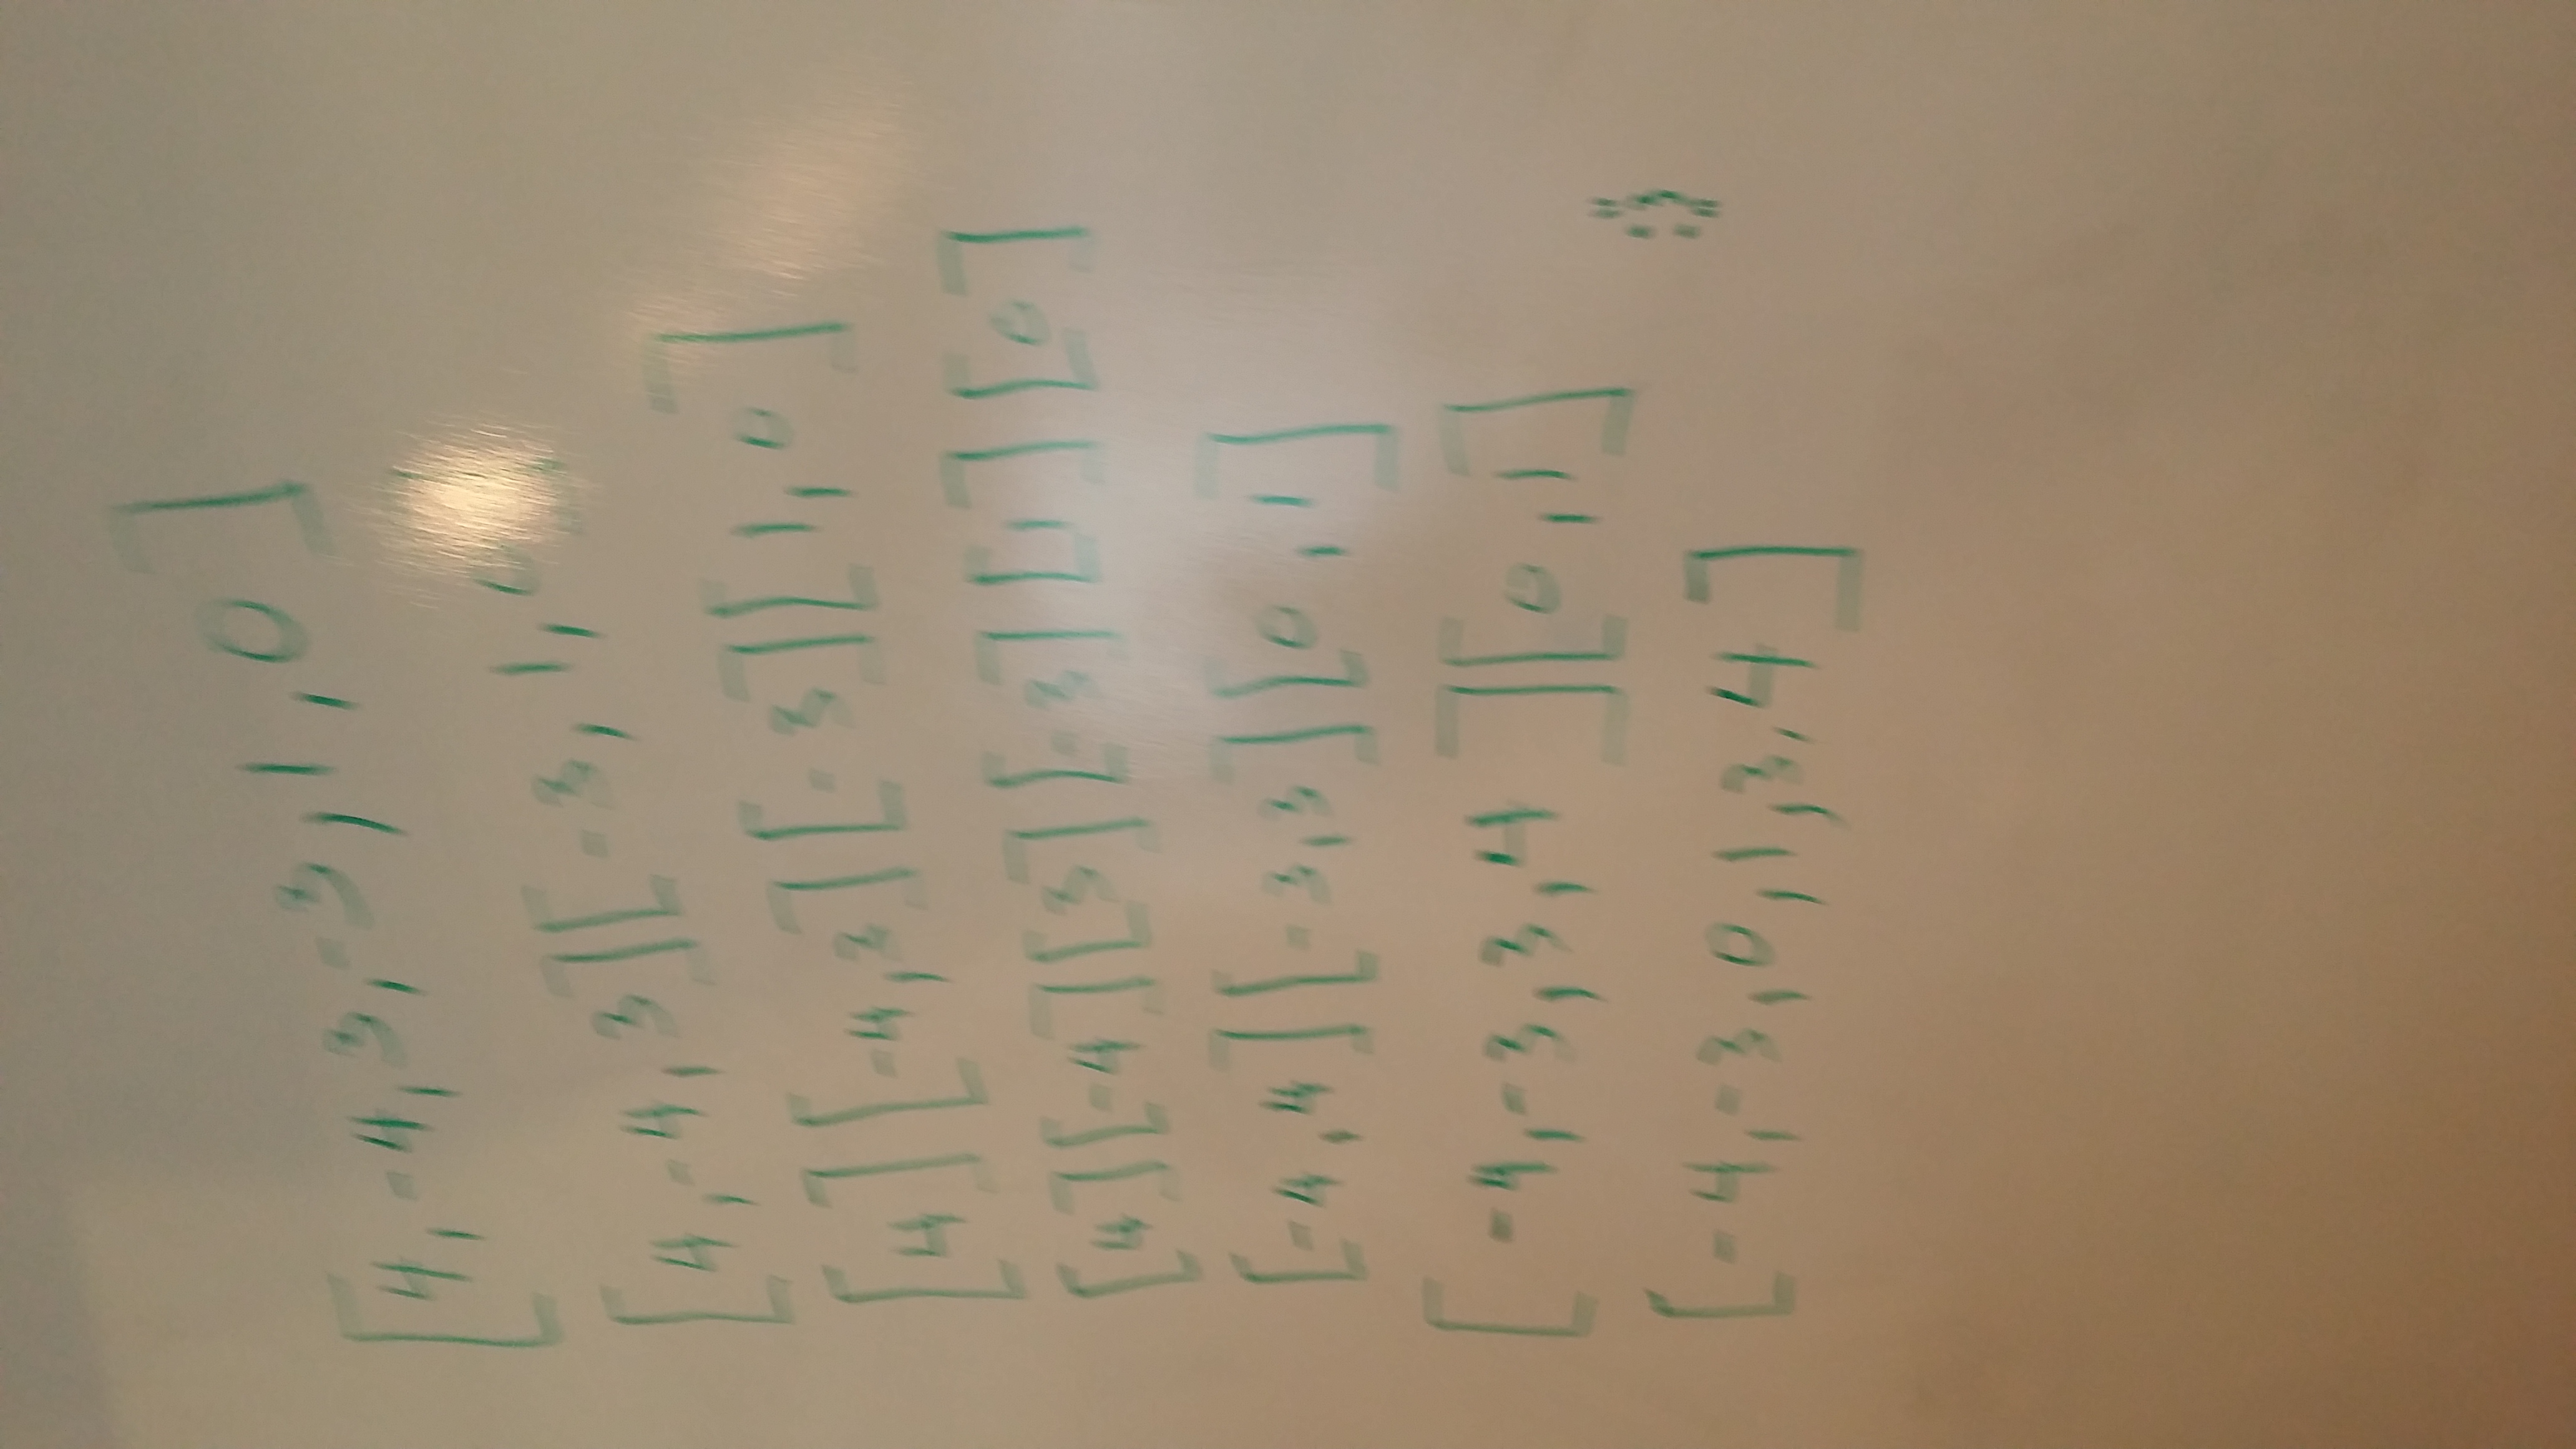 [4,-4,3,-3,1,0]
[4,-4,3][-3,1,0]
[4][-4,3][-3][1,0]
[4][-4][3][-3][1][0]
[-4,4][-3,3][0,1]
[-4,-3,3,4][0,1]
[-4,-3,0,1,3,4]